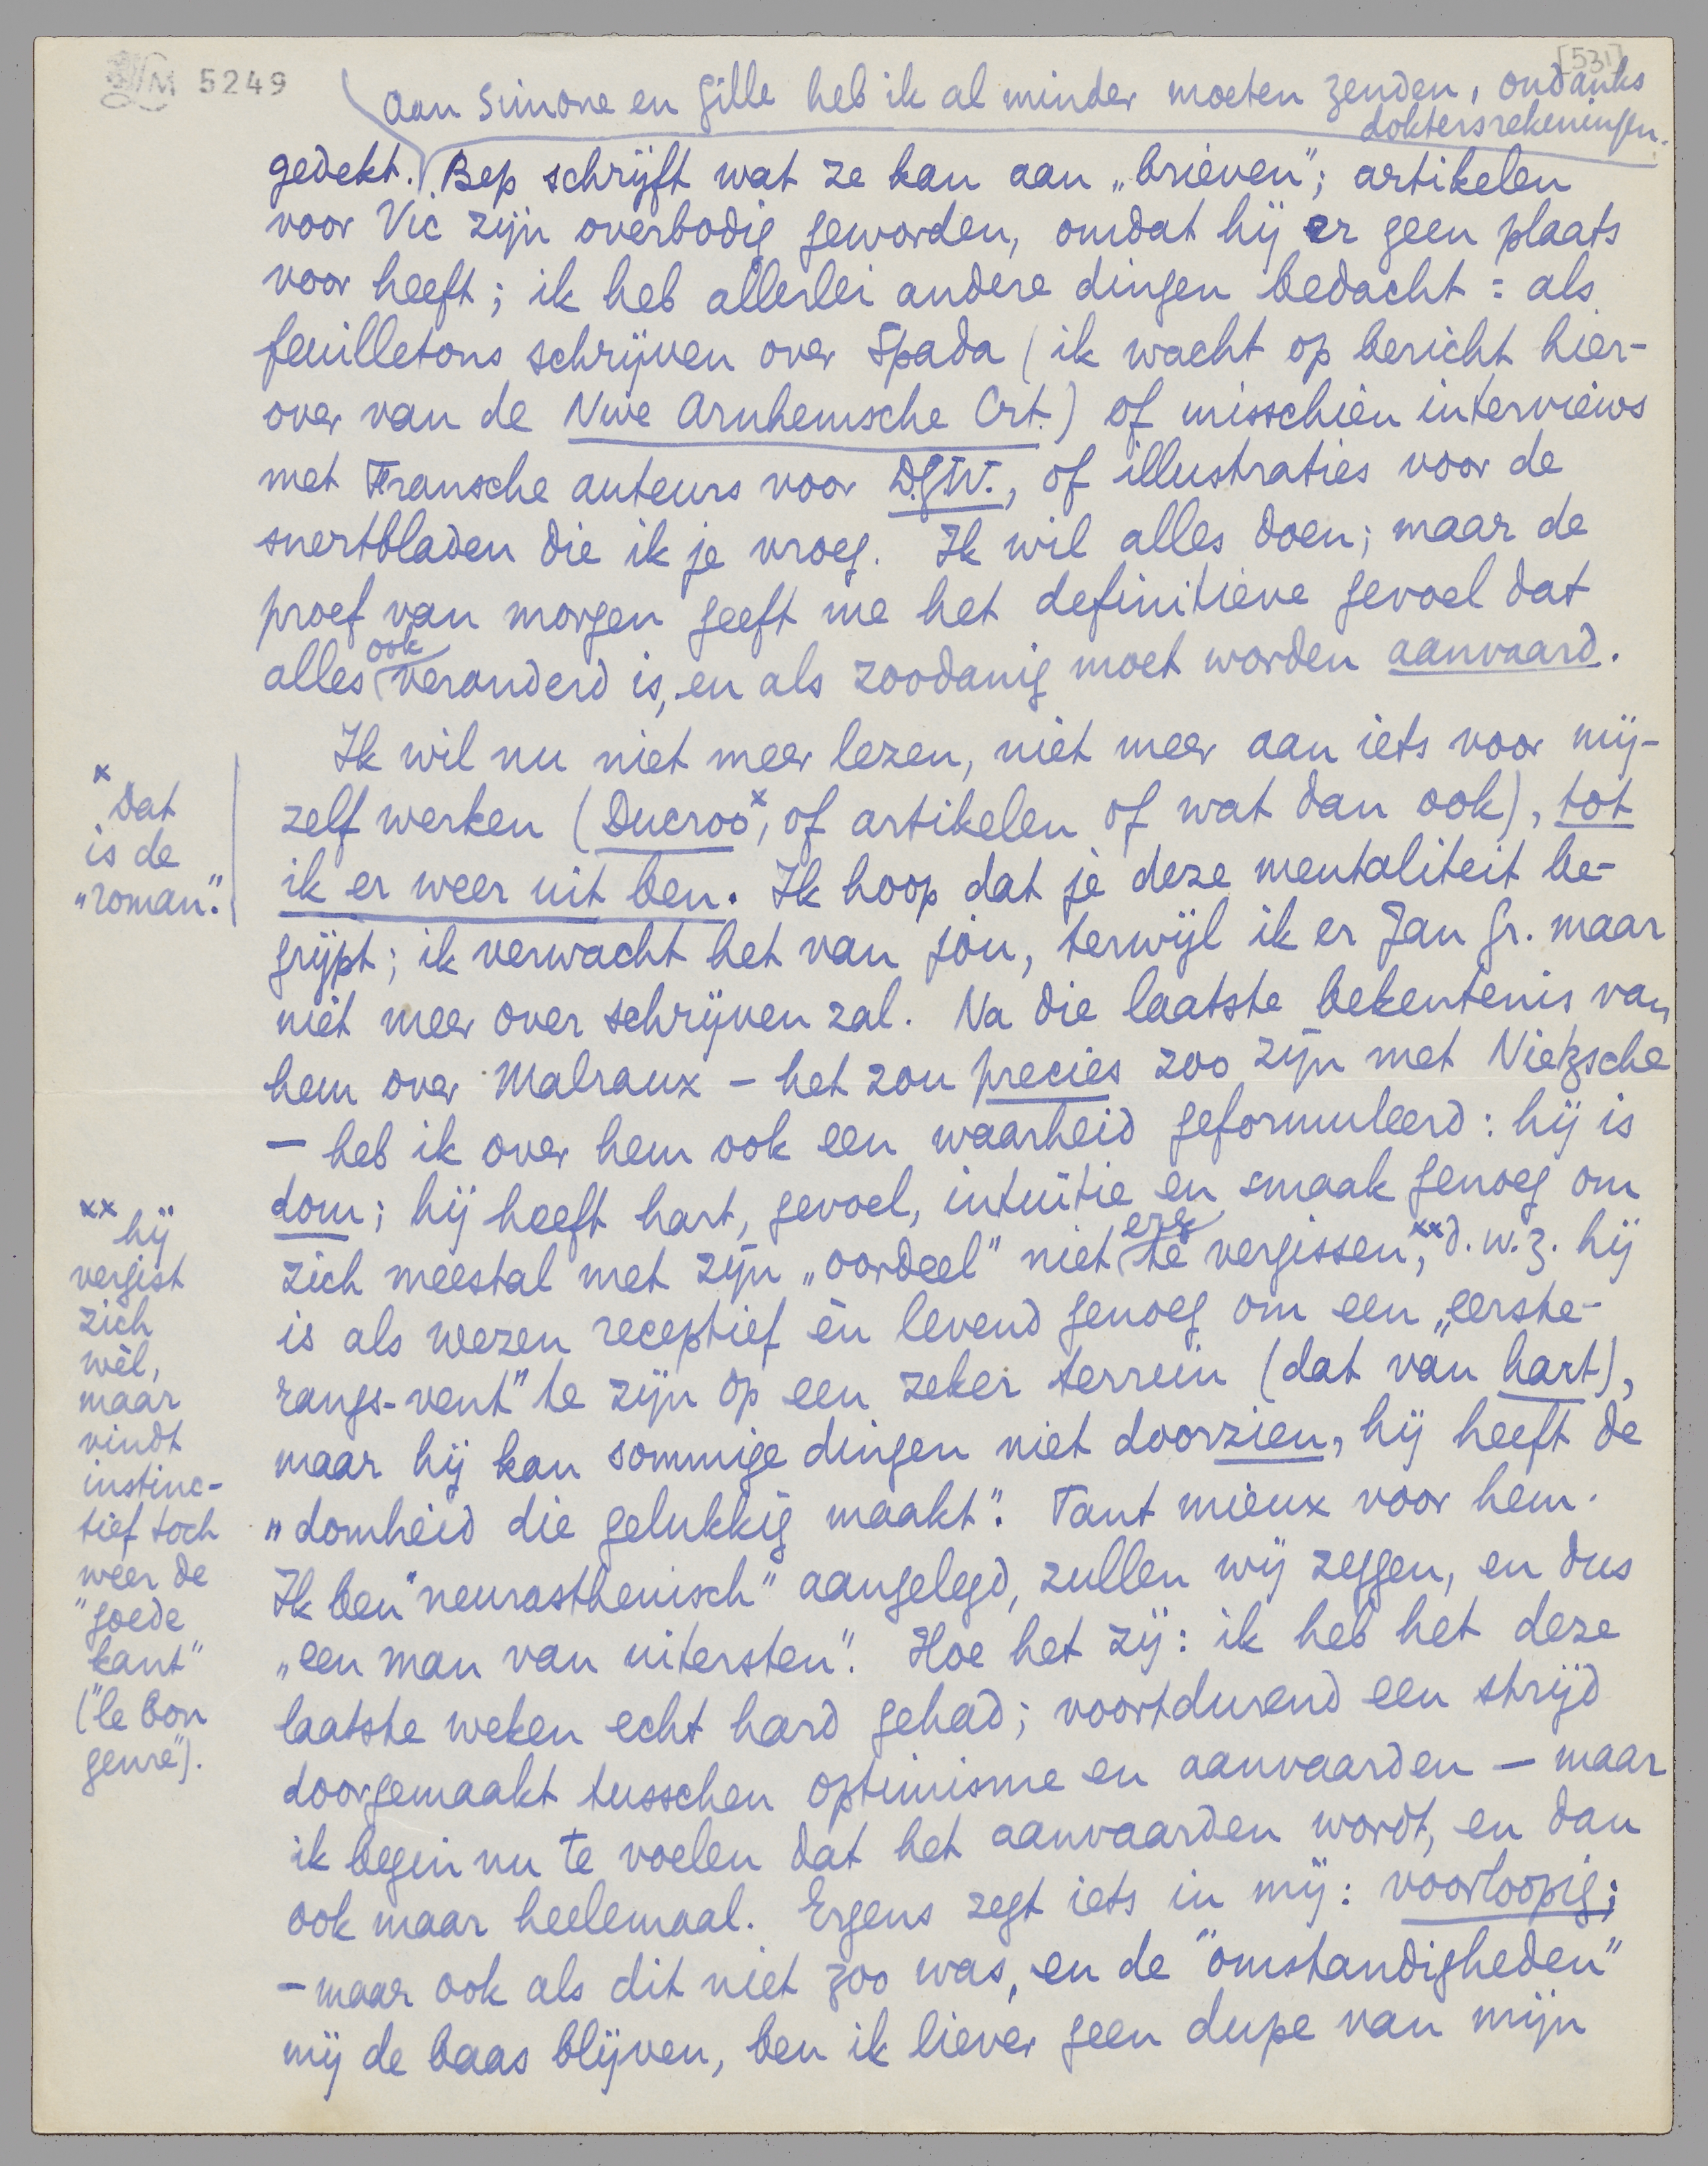 5249
[531]
Aan Simone en Gille heb ik al minder moeten zenden, ondanks
doktersrekeningen.
gedekt. Bep schrijft wat ze kan aan „brieven”; artikelen
voor Vic zijn overbodig geworden, omdat hij er geen plaats
voor heeft; ik heb allerlei andere dingen bedacht: als
feuilletons schrijven over Spada (ik wacht op bericht hier-
over van de Nwe Arnhemsche Crt.) of misschien interviews
met Fransche auteurs voor D.G.W., of illustraties voor de
snertbladen die ik je vroeg. Ik wil alles doen; maar de
proef van morgen geeft me het definitieve gevoel dat
ook
alles veranderd is, en als zoodanig moet worden aanvaard.
Ik wil nu niet meer lezen, niet meer aan iets voor mij-
zelf werken (Ducroo x, of artikelen of wat dan ook), tot
ik er weer uit ben. Ik hoop dat je deze mentaliteit be-
grijpt; ik verwacht het van jóu, terwijl ik er Jan Gr. maar
niet meer over schrijven zal. Na die laatste bekentenis van
hem over Malraux – het zou precies zoo zijn met Nietzsche
– heb ik over hem ook een waarheid geformuleerd: hij is
dom; hij heeft hart, gevoel, intuïtie en smaak genoeg om
erg
zich meestal met zijn „oordeel” niet te vergissen, xx d.w.z. hij
is als wezen receptief èn levend genoeg om een „eerste-
rangs-vent” te zijn op een zeker terrein (dat van hart),
maar hij kan sommige dingen niet doorzien, hij heeft de
„domheid die gelukkig maakt”. Tant mieux voor hem.
Ik ben "neurasthenisch" aangelegd, zullen wij zeggen, en dus
„een man van uitersten”. Hoe het zij: ik heb het deze
laatste weken echt hard gehad; voortdurend een strijd
doorgemaakt tusschen optimisme en aanvaarden – maar
ik begin nu te voelen dat het aanvaarden wordt, en dan
ook maar heelemaal. Ergens zegt iets in mij: voorloopig;
– maar ook als dit niet zoo was, en de "omstandigheden"
mij de baas blijven, ben ik liever geen dupe van mijn
x dat
is de
„roman”.
xx hij
vergist
zich
wèl,
maar
vindt
instinc-
tief toch
weer de
"goede
kant"
("le bon
genre").